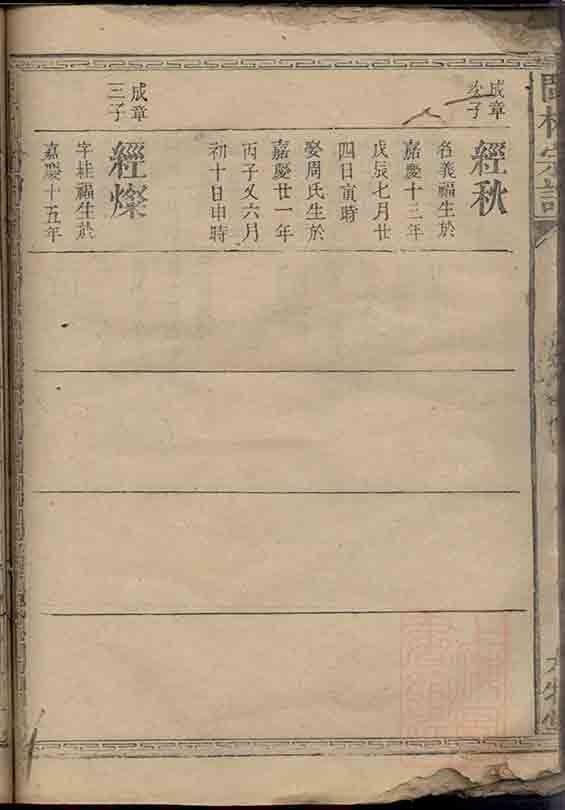 成章
次子
經秋
名義福生於
嘉慶十三年
戊辰七月廿
四日寅時
娶周氏生於
嘉慶廿一年
丙子又六月
初十日申時
成章
三子
經燦
字桂福生於
嘉慶十五年
林宗譜